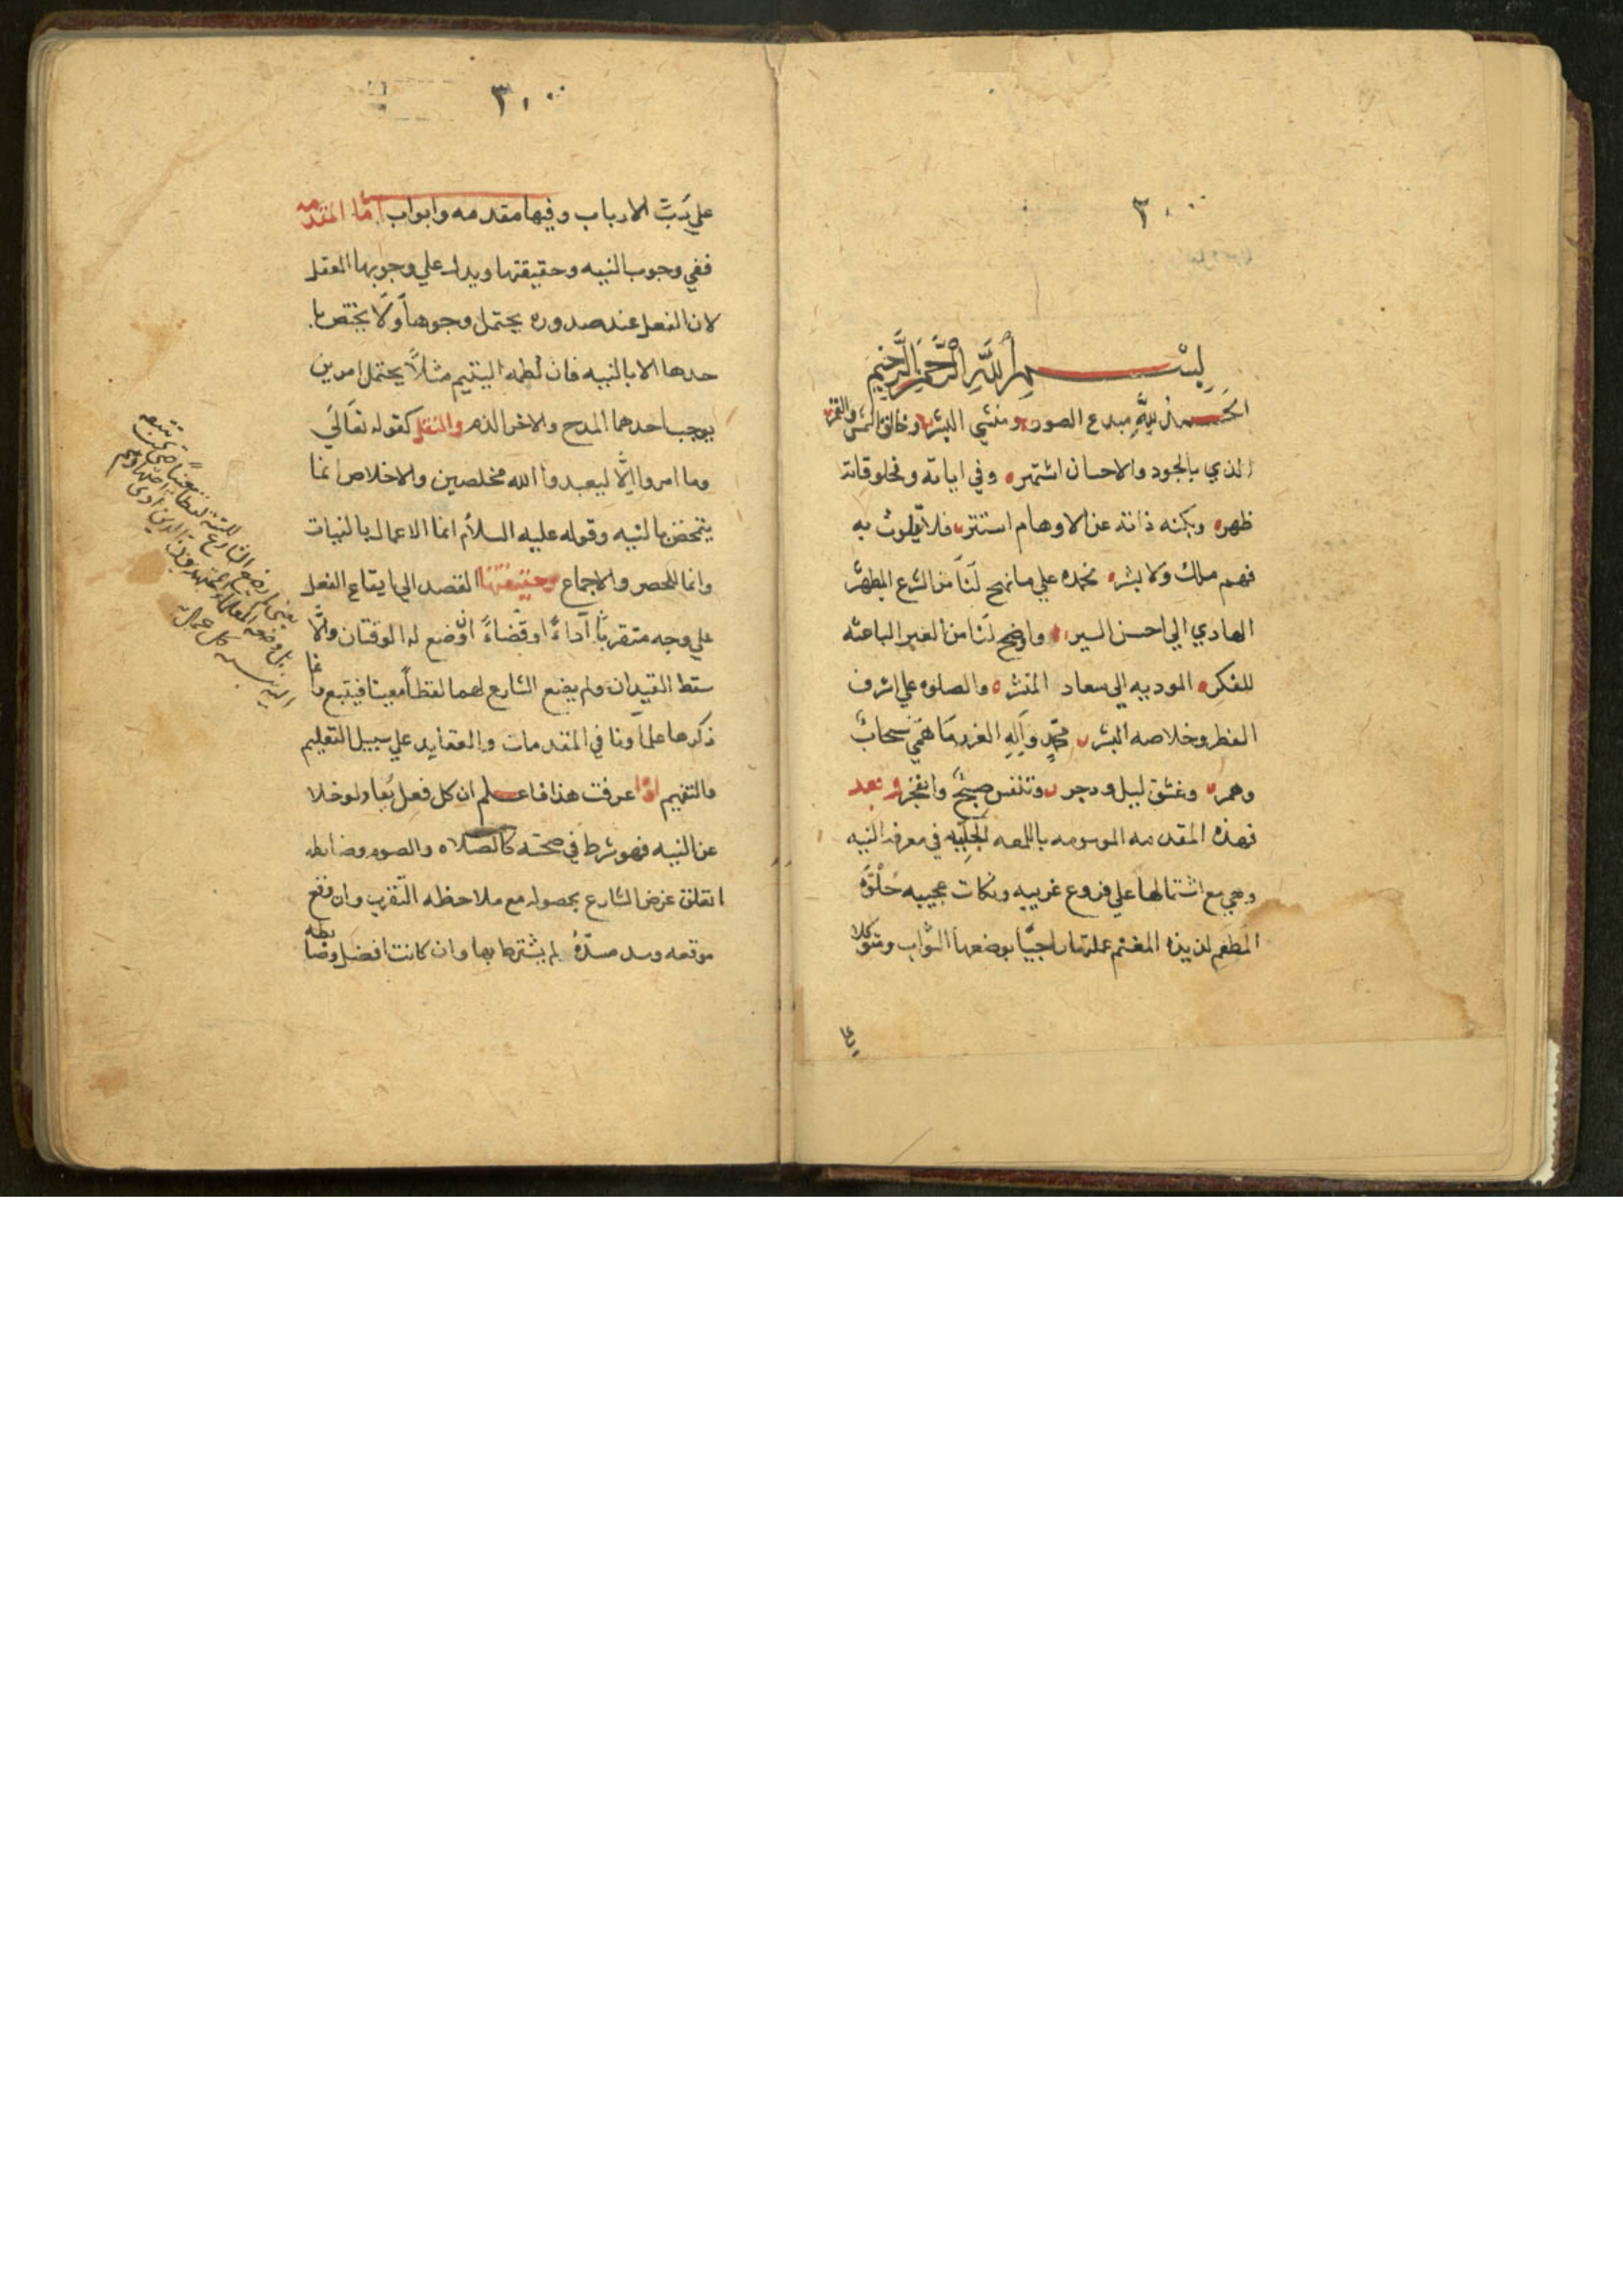 ٣٠٠٠
بسم الله الرحمن الرحيم
الحمد لله مبدع الصور ومنشي البشر وخالق الشمس والقمر
الذي بالجود والاحسان اشتهر وفي اياته ومخلوقاته
ظهر وبكنه ذاته عن الاوهام استتر فلا يلوث به
فهم ملك ولا بشر نحمده علي ما نهج لنا من الشرع المطهر
الهادي الي احسن السير واوضح لنا من العبر الباعثه
للفكر الموديه الي سعاد المنشره والصلوه علي اشرف
الفطر وخلاصه البشر محمد وآله الغرر ما همي سحاب
وهمر وغسق ليل ودجر وتنفس صبح وانفجر وبعد
فهذه المقدمه الموسومه باللمعه الجلييه في معرفه النيه
وهي مع اشتمالها علي فروع غريبه ونكات عجيبه حلوة
المطعم لذيذه المغنم عملتها راجيا بوضعها الثواب ومتوكلا
علي
٣٠٠٠
علي رب الارباب وفيها مقدمه وابواب اما المقدمه
ففي وجوب النيه وحقيقتها ويدل علي وجوبها العقل
لان الفعل عند صدوره يحتمل وجوها ولا يختص با
حدها الا بالنيه فان لطمه اليتيم مثلا يحتمل امرين
يوجب احدهما المدح والاخر الذم والنقل كقوله تعالي
وما امروا الا ليعبدوا الله مخلصين والاخلاص انما
يتمحض بالنيه وقوله عليه السلام انما الاعمال بالنيات
وانما للحصر والاجماع وحقيقتها القصد الي ايقاع الفعل
علي وجه متقربا آداء او قضاء ان وضع له الوقتان والا
سقط القيدان ولم يضع الشارع لهما لفظا معينا فيتبع وانما
ذكرها علماونا في المقدمات والعقايد علي سبيل التعليم
والتفهيم اذا عرفت هذا فاعلم ان كل فعل يعاد لو خلا
عن النيه فهو شرط في صحته كالصلاه والصوم وضابطه
ا تعلق غرض الشارع بحصوله مع ملاحظه التقرب وان وقع
موقعه وسد مسده لم يشترط بها وان كانت افضل وضابطه
يعني لم يضع الشارع للنية لفظا معينا حتى نتبعه
بل وضعه العلماء المجتهدون